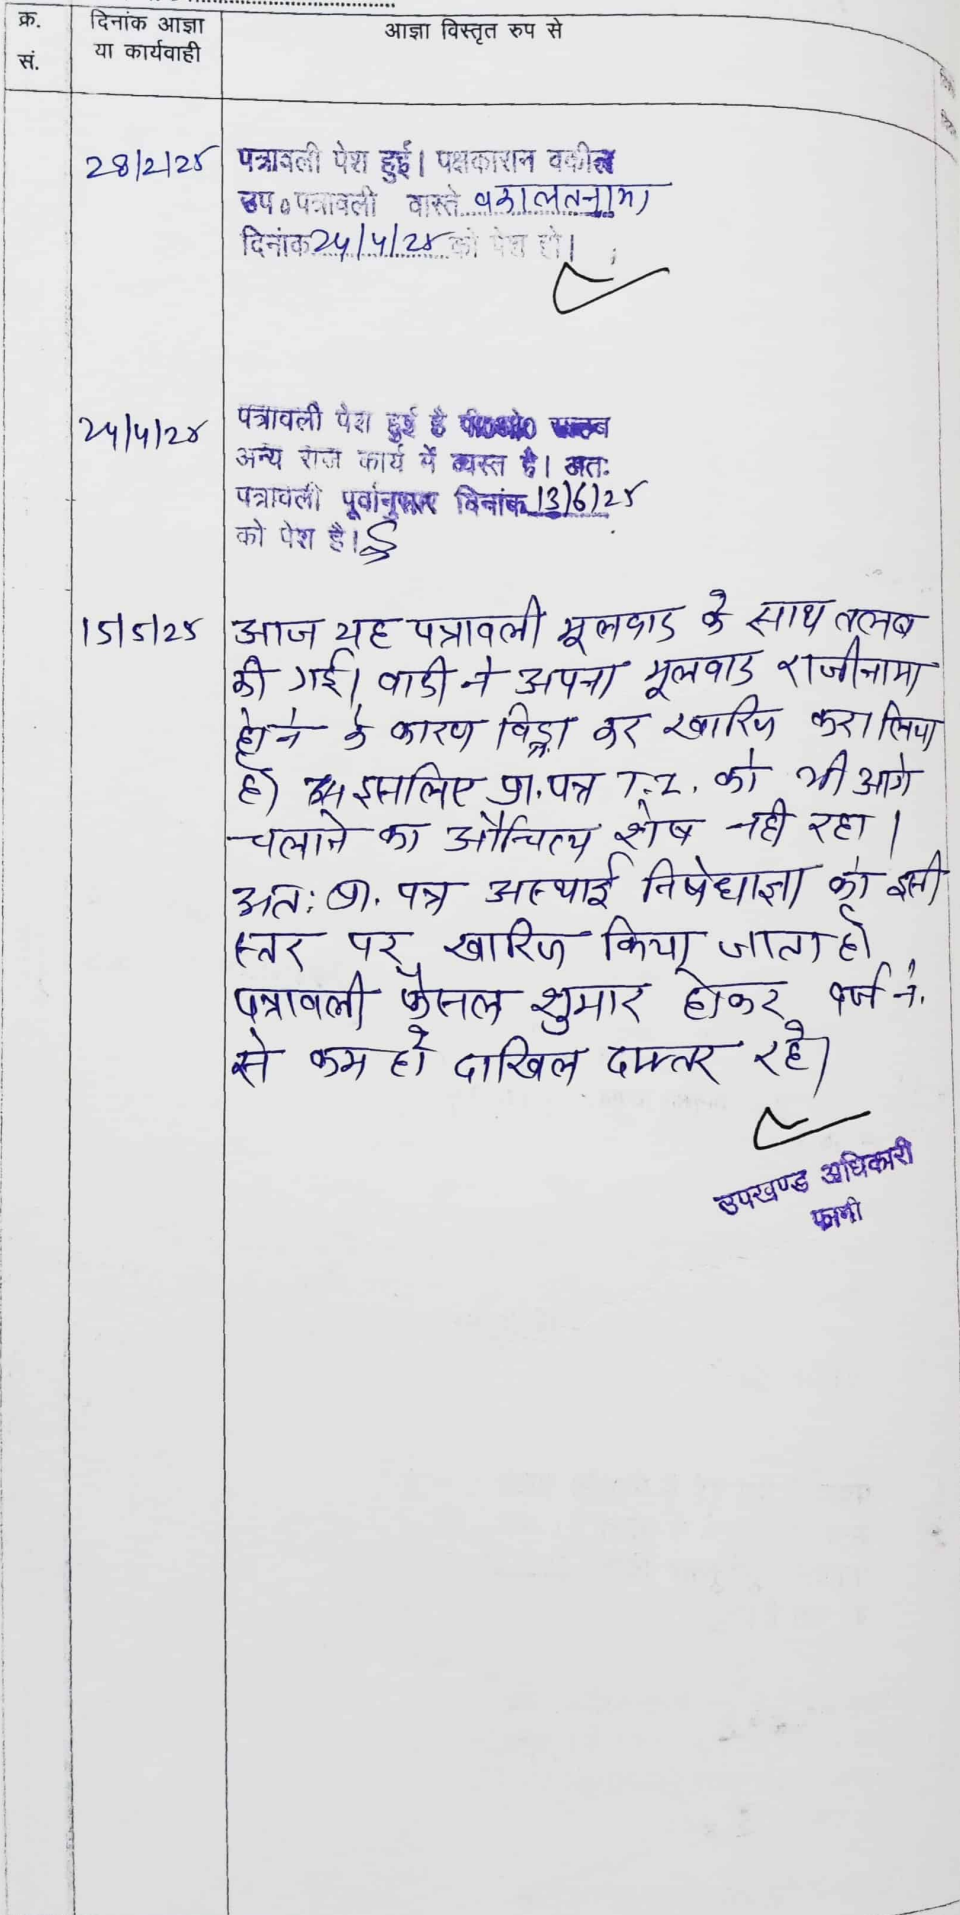 क्र.
सं.
दिनांक आज्ञा
या कार्यवाही
आज्ञा विस्तृत रुप से
28/2/25
पत्रावली पेश हुई। पक्षकारान वकील
उप० पत्रावली वास्ते वकालतनामा
दिनांक 24/4/25 को पेश हो।
24/4/25
पत्रावली पेश हुई है पी०ओ०
अन्य राज कार्य में व्यस्त है। अतः
पत्रावली पूर्वानुसार दिनांक 13/6/25
को पेश है।
15/5/25
आज यह पत्रावली मूलवाद के साथ तलब
की गई। वादी ने अपना मूलवाद राजीनामा
होने के कारण विड्रा कर खारिज करा लिया
है। इसलिए प्रा.पत्र T.I. को भी आगे
चलाने का औचित्य शेष नही रहा।
अतः प्रा. पत्र अस्थाई निषेधाज्ञा को इसी
स्तर पर खारिज किया जाता है।
पत्रावली फैसल शुमार होकर दर्ज नं.
से कम हो दाखिल दफ्तर रहे।
उपखण्ड अधिकारी
फागी